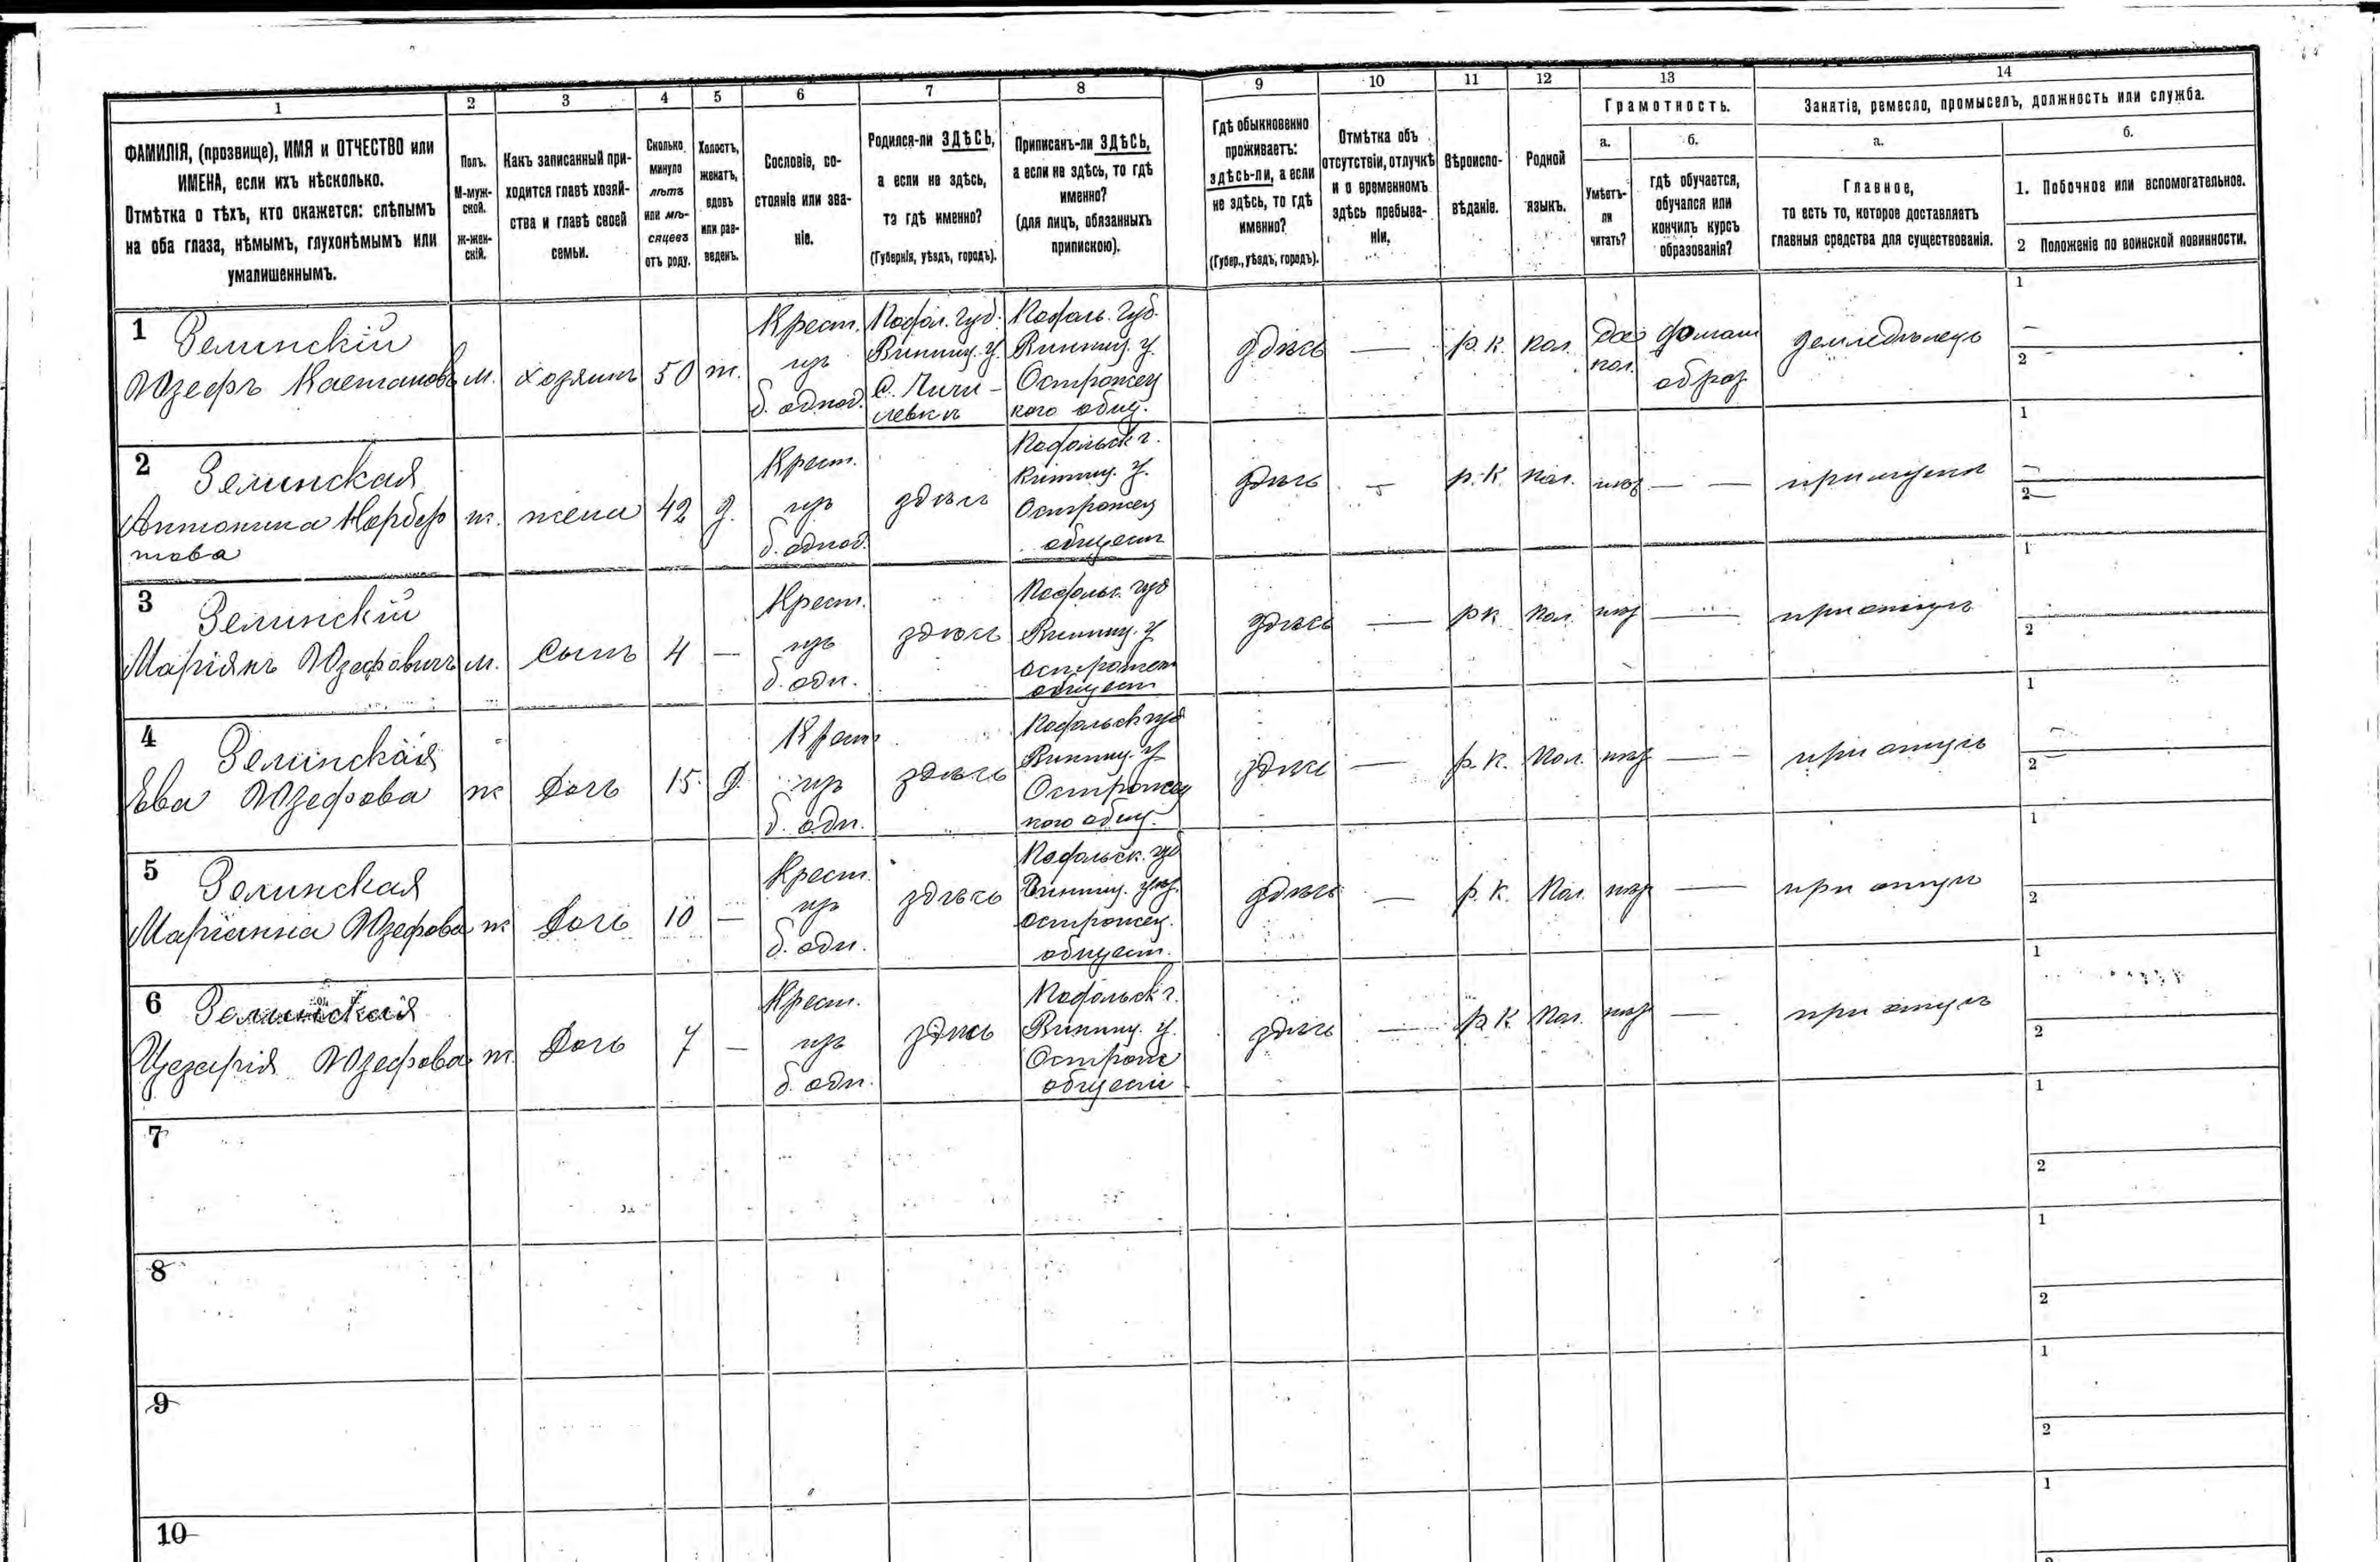 1 2 3 4 5 6 7 8 9 10 11 12 13 14
ФАМИЛІЯ, (прозвище), ИМЯ и ОТЧЕСТВО или
ИМЕНА, если ихъ нѣсколько.
Отмѣтка о тѣхъ, кто окажется: слѣпымъ
на оба глаза, нѣмымъ, глухонѣмымъ или
умалишеннымъ.
Полъ.
М-муж-
ской.
Ж-жен-
скій.
Какъ записанный при-
ходится главѣ хозяй-
ства и главѣ своей
семьи.
Сколько
минуло
лѣтъ
или мѣ-
сяцевъ
отъ роду.
Холостъ,
женатъ,
вдовъ
или раз-
веденъ.
Сословіе, со-
стояніе или зва-
ніе.
Родился-ли ЗДѢСЬ,
а если не здѣсь,
то гдѣ именно?
(Губернія, уѣздъ, городъ).
Приписанъ-ли ЗДѢСЬ,
а если не здѣсь, то гдѣ
именно?
(для лицъ, обязанныхъ
припискою).
Гдѣ обыкновенно
проживаетъ:
здѣсь-ли, а если
не здѣсь, то гдѣ
именно?
(Губер., уѣздъ, городъ).
Отмѣтка объ
отсутствіи, отлучкѣ
и о временномъ
здѣсь пребыва-
ніи.
Вѣроиспо-
вѣданіе.
Родной
языкъ.
Грамотность.
а.
Умѣетъ-
ли
читать?
б.
гдѣ обучается,
обучался или
кончилъ курсъ
образованія?
Занятіе, ремесло, промыселъ, должность или служба.
а.
Главное,
то есть то, которое доставляетъ
главныя средства для существованія.
б.
1. Побочное или вспомогательное.
2 Положеніе по воинской повинности.
1 Зелинскій
Юзефъ Каетановъ
м.
хозяинъ
50
ж.
Крест.
изъ
б. одног.
Подол. губ.
Винниц. у.
Подоль. губ.
Винниц. у.
Острожец
кого общ.
здѣсь
—
р. к.
пол.
да
пол.
домаш
образ
земледѣлецъ
1
—
2
2 Зелинская
Антонина Норбер
това
ж.
жена
42
з.
Крест.
изъ
б. одног.
здѣсь
Подольск г.
Винниц. у.
Острожец
общест
здѣсь
—
р. к.
пол.
— —
при мужѣ
1
—
2 —
3 Зелинскій
Маріянъ Юзефовичъ
м.
Сынъ
4
—
Крест.
изъ
б. одн.
здѣсь
Подольс. губ
Винниц. у
острожец
общест
здѣсь
—
р к
пол.
—
при отцѣ
1
2
4 Зелинская
Ева Юзефова
ж
Дочь
15.
Д.
Крест
изъ
б. одн.
здѣсь
Подольск губ
Винниц. у
Острожец
кого общ.
здѣсь
—
р. к.
Пол.
— —
при отцѣ
1
—
2 —
5 Зелинская
Маріанна Юзефова
ж
Дочь
10
—
Крест.
изъ
б. одн.
здѣсь
Подольск. губ
Винниц. уѣз.
острожец.
общест.
здѣсь
—
р. к.
Пол.
—
при отцѣ
1
2
6 Зелинская
Цезарія Юзефова
ж.
Дочь
7
—
Крест.
изъ
б. одн.
здѣсь
Подольск г.
Винниц. у.
Остроже
общест
здѣсь
—
р. к.
Пол.
—
при отцѣ
1
2
7
1
2
8
1
2
9
1
2
10
1